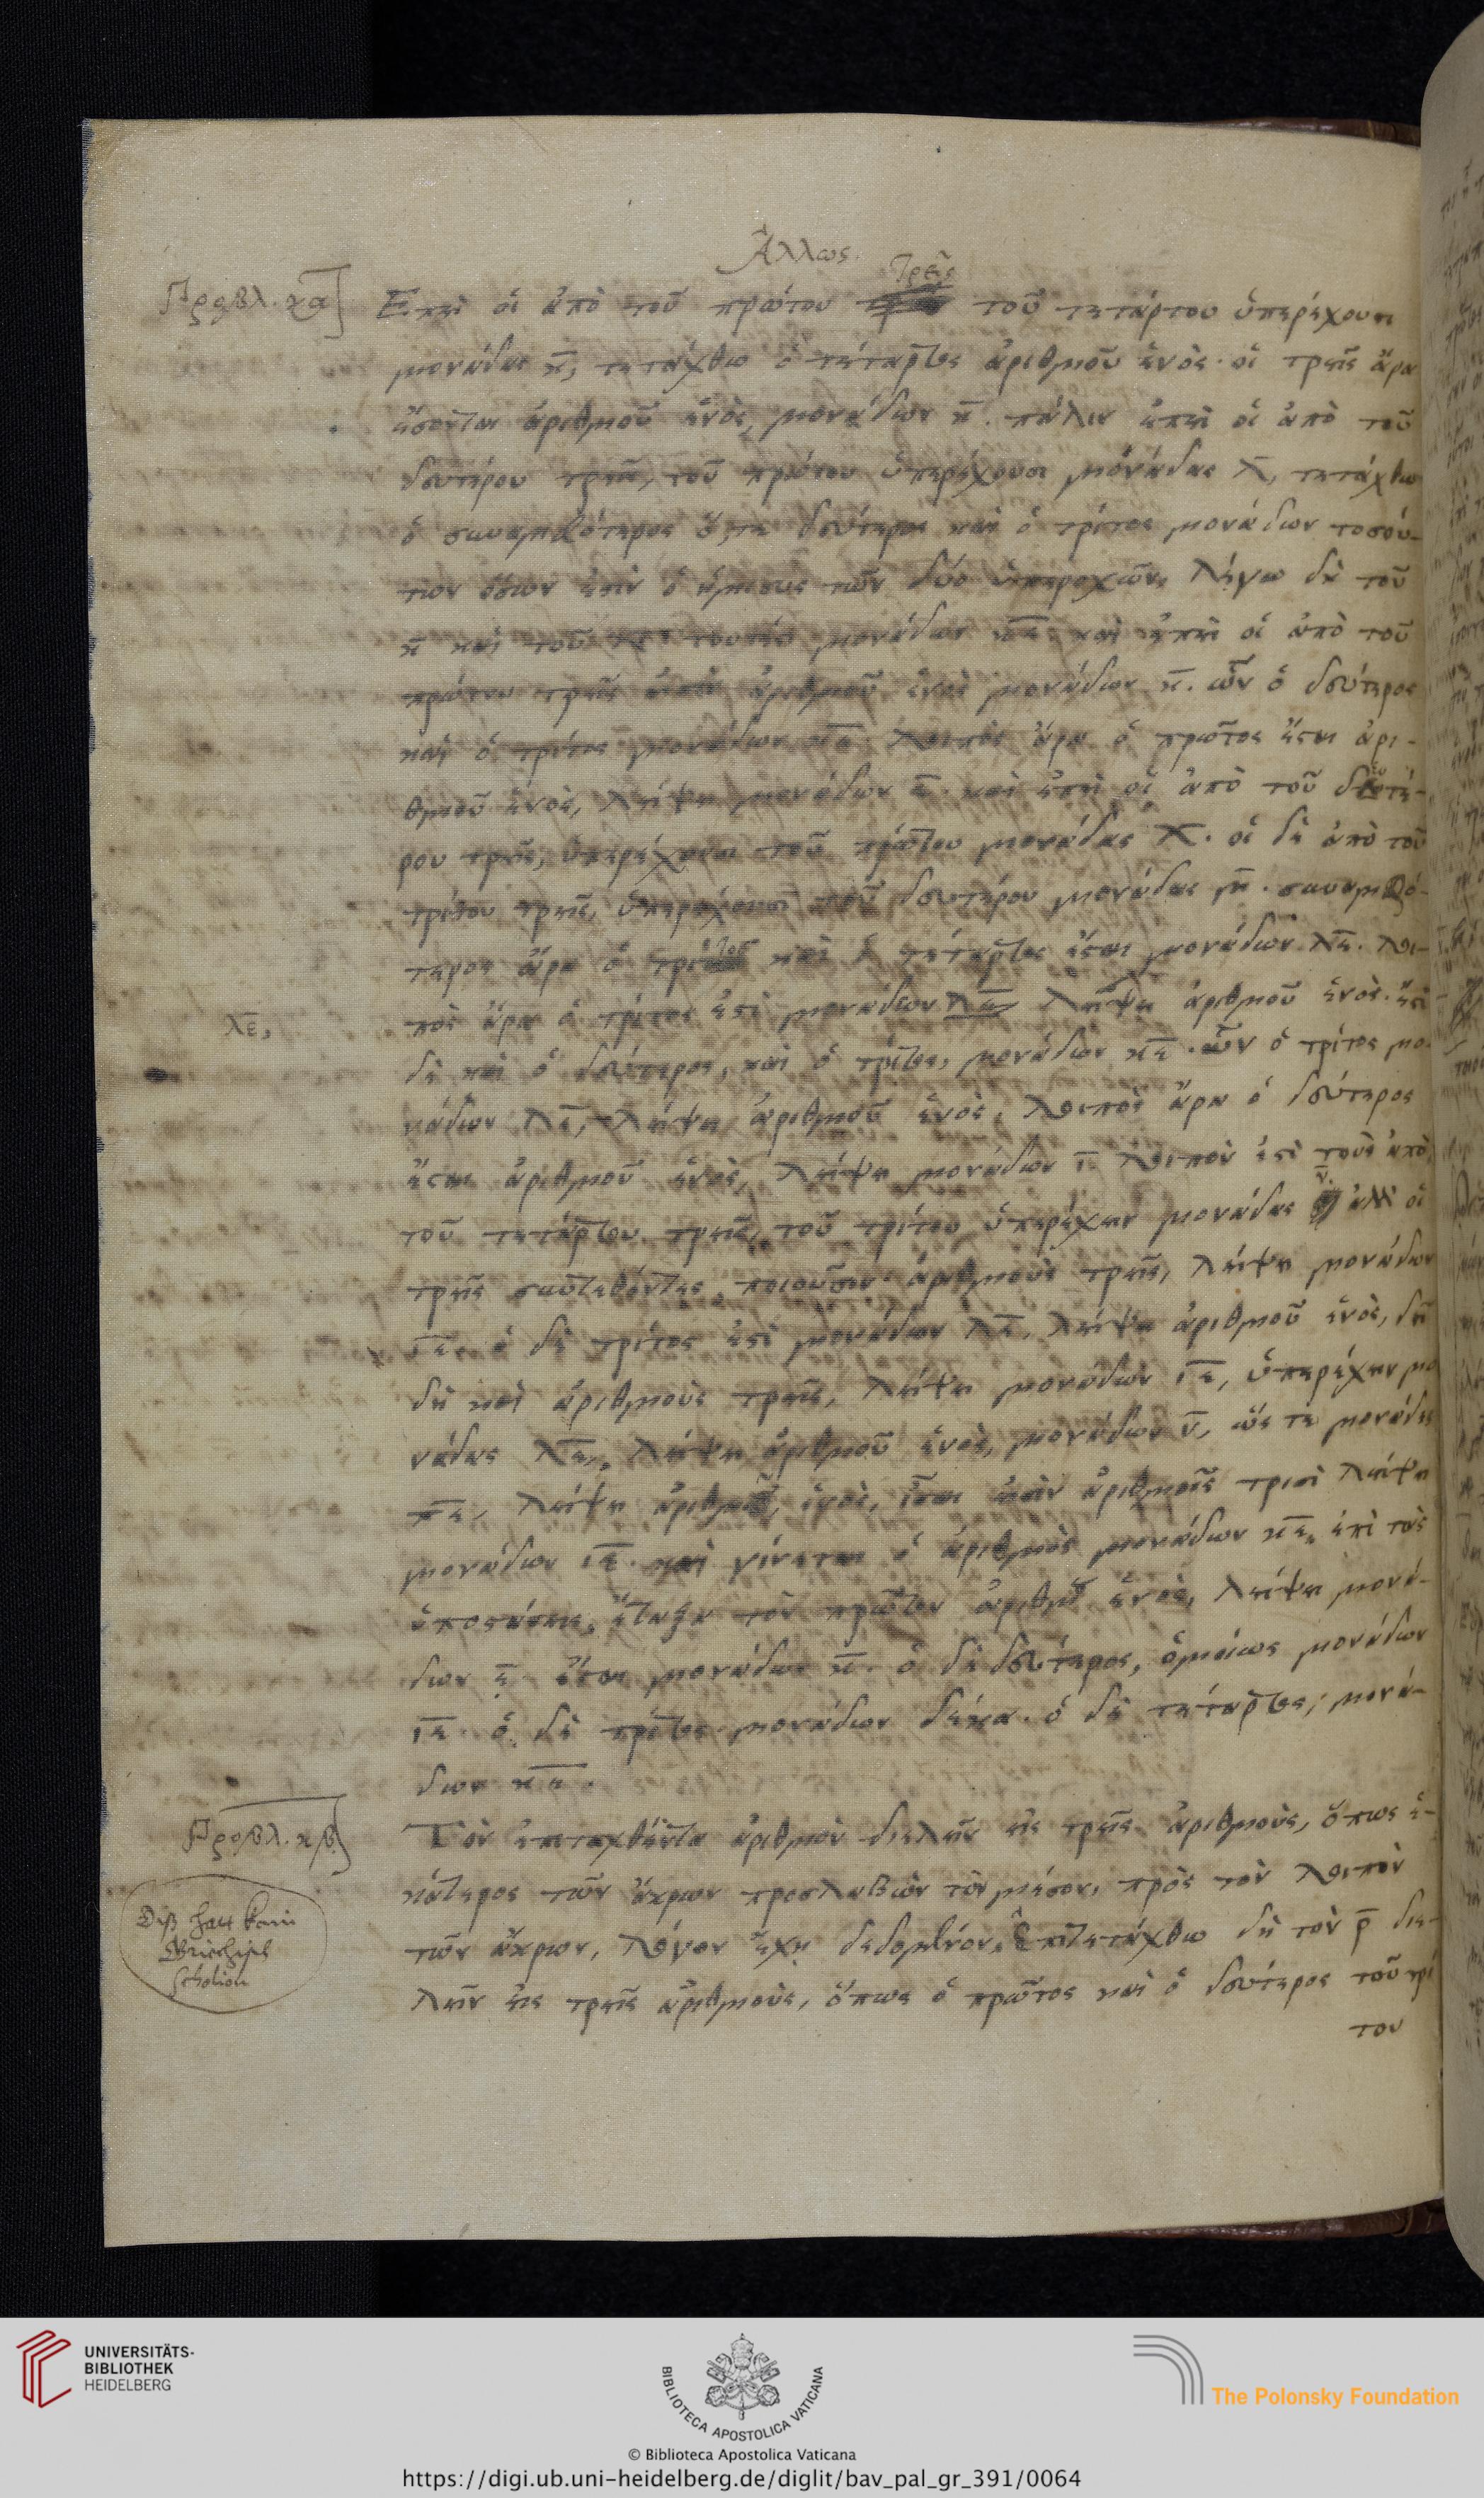 Ἄλλως.
Προβλ. κα
τρεῖς
Ἐπεὶ οἱ ἀπὸ τοῦ πρώτου τοῦ τετάρτου ὑπερέχουσι
μονάδας κ̅, τετάχθω ὁ τέταρτος ἀριθμοῦ ἑνὸς· οἱ τρεῖς ἄρα
ἔσονται ἀριθμοῦ ἑνὸς, μονάδων κ̅. πάλιν ἐπεὶ οἱ ἀπὸ τοῦ
δευτέρου τρεῖς, τοῦ πρώτου ὑπερέχουσι μονάδας λ̅, τετάχθω
ὁ συναμφότερος ὅ, τε δεύτερος καὶ ὁ τρίτος μονάδων τοσού-
των ὅσων ἐστὶν ὁ ἥμισυς τῶν δύο ὑπεροχῶν, λέγω δὲ τοῦ
κ̅ καὶ τοῦ λ̅ τουτέστι μονάδων κ̅ε̅· καὶ ἐπεὶ οἱ ἀπὸ τοῦ
πρώτου τρεῖς ἀριθμοῦ ἑνὸς μονάδων κ̅. ὧν ὁ δεύτερος
καὶ ὁ τρίτος μονάδων κ̅ε̅· λοιπὸς ἄρα ὁ πρῶτος ἔσται ἀρι-
θμοῦ ἑνὸς, λείψει μονάδων ε̅· καὶ ἐπεὶ οἱ ἀπὸ τοῦ δευτέ-
ρου τρεῖς, ὑπερέχουσι τοῦ πρώτου μονάδας λ̅· οἱ δὲ ἀπὸ τοῦ
τρίτου τρεῖς, ὑπερέχουσι τοῦ δευτέρου μονάδας μ̅. συναμφό-
τερος ἄρα ὁ τρίτος καὶ ὁ τέταρτος ἔσται μονάδων λ̅ε̅. λοι-
πὸς ἄρα ὁ τρίτος ἐστὶ μονάδων λ̅ε̅ λείψει ἀριθμοῦ ἑνὸς· ἔστι
λ̅ε̅,
δὲ καὶ ὁ δεύτερος, καὶ ὁ τρίτος, μονάδων κ̅ε̅· ὧν ὁ τρίτος μο-
νάδων λ̅ε̅, λείψει ἀριθμοῦ ἑνὸς. λοιπὸς ἄρα ὁ δεύτερος
ἔσται ἀριθμοῦ ἑνὸς, λείψει μονάδων ι̅. λοιπὸν ἐστὶ τοὺς ἀπὸ
τοῦ τετάρτου τρεῖς, τοῦ τρίτου ὑπερέχειν μονάδας ν̅. ἀλλ' οἱ
τρεῖς συντεθέντες ποιοῦσιν ἀριθμοὺς τρεῖς, λείψει μονάδων
ι̅ε̅· ὁ δὲ τρίτος ἐστὶ μονάδων λ̅ε̅, λείψει ἀριθμοῦ ἑνὸς, δεῖ
δὴ καὶ ἀριθμοὺς τρεῖς, λείψει μονάδων ι̅ε̅, ὑπερέχειν μο
νάδας λ̅ε̅, λείψει ἀριθμοῦ ἑνὸς, μονάδων ν̅, ὥς τε μονάδες
π̅ε̅, λείψει ἀριθμοῦ, ἑνὸς, ἴσαι εἰσὶν ἀριθμοῖς τρισὶ λείψει
μονάδων ι̅ε̅· καὶ γίνεται ὁ ἀριθμὸς μονάδων κ̅ε̅, ἐπὶ τὰς
ὑποστάσεις, ἔταξα τὸν πρῶτον ἀριθμοῦ ἑνὸς, λείψει μονά-
δων ε̅· ἔσται μονάδων κ̅. ὁ δὲ δεύτερος, ὁμοίως μονάδων
ι̅ε̅· ὁ δὲ τρίτος μονάδων δέκα· ὁ δὲ τέταρτος, μονά-
δων κ̅ε̅.
Προβλ. κβ
Τὸν ἐπιταχθέντα ἀριθμὸν διελεῖν εἰς τρεῖς ἀριθμοὺς, ὅπως ἑ-
κάτερος τῶν ἄκρων προσλαβὼν τὸν μέσον, πρὸς τὸν λοιπὸν
τῶν ἄκρων, λόγον ἔχῃ δεδομένον. Ἐπιτετάχθω δὴ τὸν ρ̅ διε-
λεῖν εἰς τρεῖς ἀριθμοὺς, ὅπως ὁ πρῶτος καὶ ὁ δεύτερος τοῦ τρί
του
Diß hatt kein
Griechisch
scholion
UNIVERSITÄTS-
BIBLIOTHEK
HEIDELBERG
BIBLIOTECA APOSTOLICA VATICANA
The Polonsky Foundation
© Biblioteca Apostolica Vaticana
https://digi.ub.uni-heidelberg.de/diglit/bav_pal_gr_391/0064